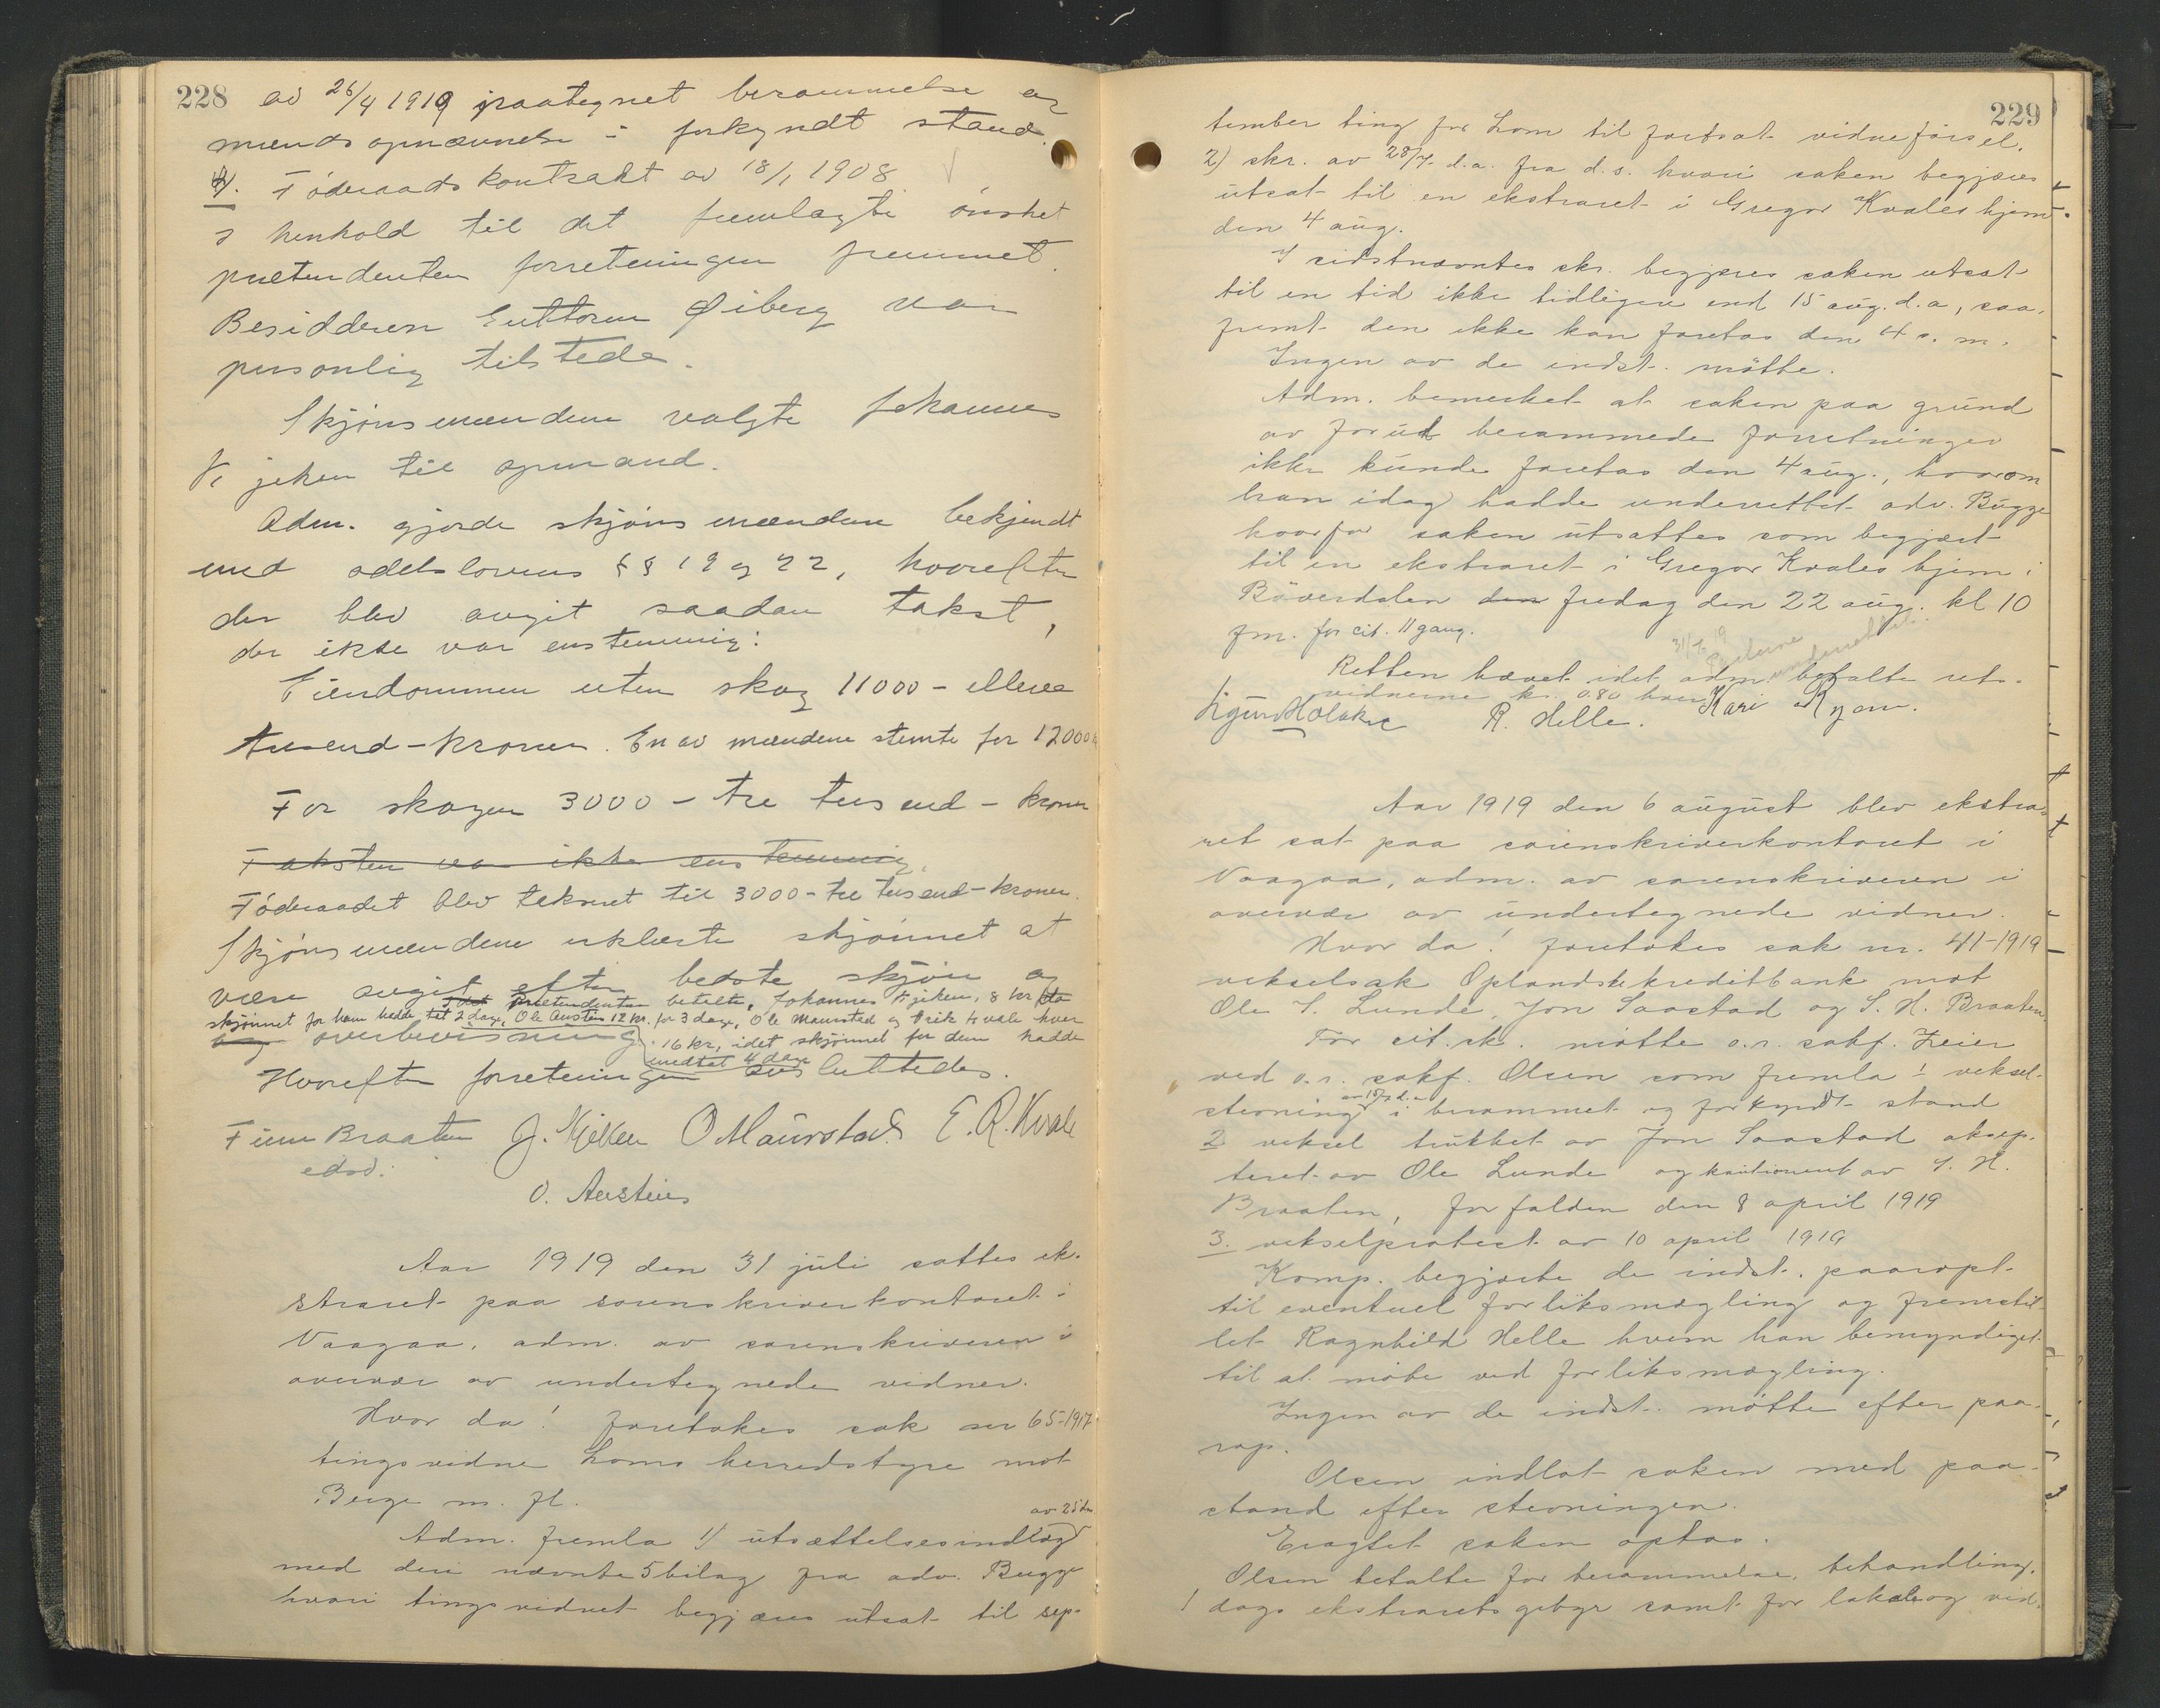 228
av 26/4 1919 paategnet berammelse og
mændsopnævnelse i forkyndt stand.
4. Föderaadskontrakt av 18/1 1908
I henhold til det fremlagte ønsket
prætendenten forretningen fremmet.
Besidderen Guttorm Øiberg var
personlig tilstede.
Skjönsmændene valgte Johannes
Kjeken til opmand.
Adm. gjorde skjönsmændene bekjendt
med odelslovens §§ 19 og 22, hvorefter
der blev avgit saadan takst,
der ikke var enstemmig:
Eiendommen uten skog 11000 - elleve
tusend - kroner. En av mændene stemte for 12000 kr
For skogen 3000 - tre tusend - kroner
Taksten var ikke enstemmig.
Föderaadet blev taksert til 3000 - tre tusend - kroner.
Skjönsmændene erklærte skjönnet at
være avgit efter bedste skjön og
Prætendenten betalte Johannes Kjeken, 8 kr da
skjönnet for ham hadde tat 2 dage, Ole Austin 12 kr. for 3 dage, Ole Maurstad og Erik Kvale hver
overbevisning. 16 kr, idet skjönnet for dem hadde
medtat 4 dage
Hvorefter forretningen sluttedes.
Finn Braaten J. Kjeken O Maurstad E. R. Kvale
edsv.
O. Austin
Aar 1919 den 31 juli sattes ek-
straret paa sorenskriverkontoret i
Vaagaa, adm. av sorenskriveren i
overvær av undertegnede vidner.
Hvor da! foretokes sak nr 65-1917
tingsvidne Loms herredstyre mot
Berge m. fl.
av 25 dm
Adm. fremla 1) utsættelsesindlæg
med deri nævnte 5 bilag fra adv. Bugge
hvori tingsvidnet begjæres utsat til sep-
229
tember ting for Lom til fortsat vidneførsel.
2) skr. av 28/7 d.a. fra d.s. hvori saken begjæres
utsat til en ekstraret i Gregor Kvales hjem
den 4 aug.
I sidstnævntes skr. begjæres saken utsat
til en tid ikke tidligere end 15 aug. d.a, saa-
fremt den ikke kan foretas den 4 s. m.
Ingen av de indst. mötte.
Adm. bemerket at saken paa grund
av forut berammede forretninger
ikke kunde foretas den 4 aug., hvorom
han idag hadde underrettet adv. Bugge
hvorfor saken utsattes som begjært
til en ekstraret i Gregor Kvales hjem i
Böverdalen den fredag den 22 aug. kl 10
fm. for cit. 11 gang.
31/7 19
Parterne
underrettet
Retten hævet idet adm. betalte rets-
vidnerne kr. 0.80 hver
Sigurd Holaker R. Helle. Kari Ryen.
Aar 1919 den 6 august blev ekstra
ret sat paa sorenskriverkontoret i
Vaagaa, adm. av sorenskriveren i
overvær av undertegnede vidner.
Hvor da! foretokes sak nr. 41-1919
vekselsak Oplandskekreditbank mot
Ole S. Lunde, Jon Saastad og S. H. Braaten.
For cit. sk. mötte o.r. sakf. Zeier
ved o.r. sakf. Olsen som fremla 1 veksel-
stevning i berammet og forkyndt stand
2 veksel trukket av Jon Saastad aksep-
tert av Ole Lunde og kautionert av S. H.
Braaten, forfalden den 8 april 1919
3. vekselprotest av 10 april 1919
Komp. begjærte de indst. paaropt
til eventuel forliksmægling og fremstil-
let Ragnhild Helle hvem han bemyndiget
til at möte ved forliksmægling.
Ingen av de indst. mötte efter paa-
rop.
Olsen indlot saken med paa-
stand efter stevningen.
Eragtet saken optas.
Olsen betalte for berammelse, behandling,
1 dags ekstraretsgebyr samt for lokale og vid-